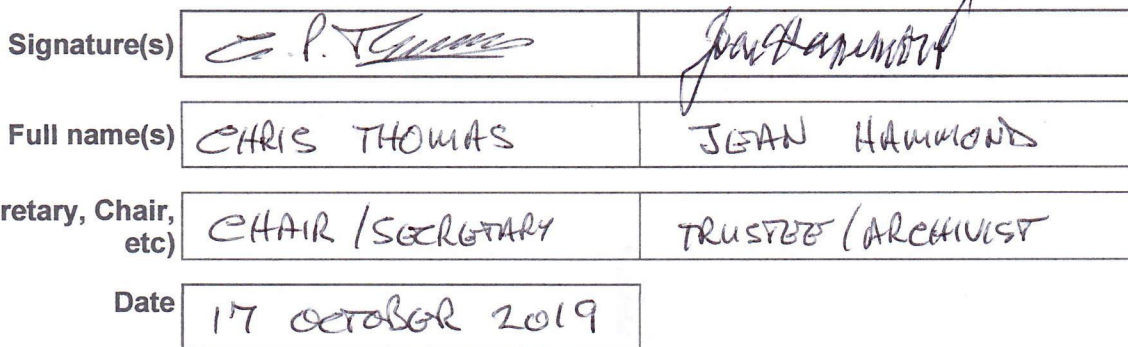 Signature(s) C. P. Thomas Jean Hammond
Full name(s) CHRIS THOMAS JEAN HAMMOND
retary, Chair, CHAIR / SECRETARY TRUSTEE / ARCHIVIST
etc)
Date 17 OCTOBER 2019